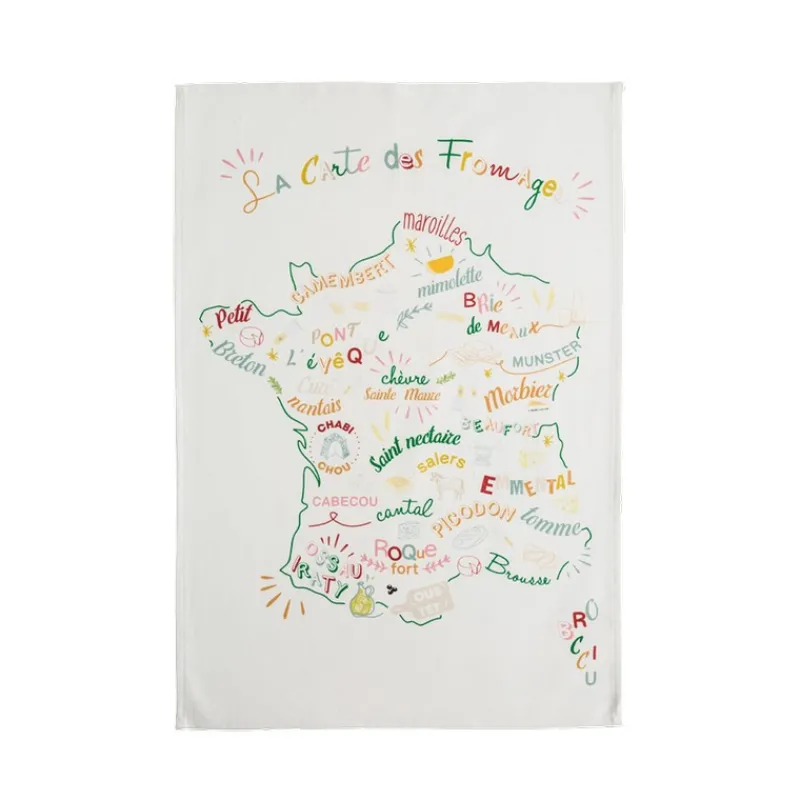 La Carte des Fromages
maroilles
CAMEMBERT
mimolette
Petit
Breton
BRie
de Meaux
PONT
L'évêQue
MUNSTER
chèvre
Sainte Maure
Curé
nantais
Morbier
CHABI
CHOU
BEAUFORT
Saint nectaire
salers
EMMENTAL
CABECOU
cantal
PICODON
tomme
ROQue
fort
OSSAU
IRATY
Brousse
BROCCIU